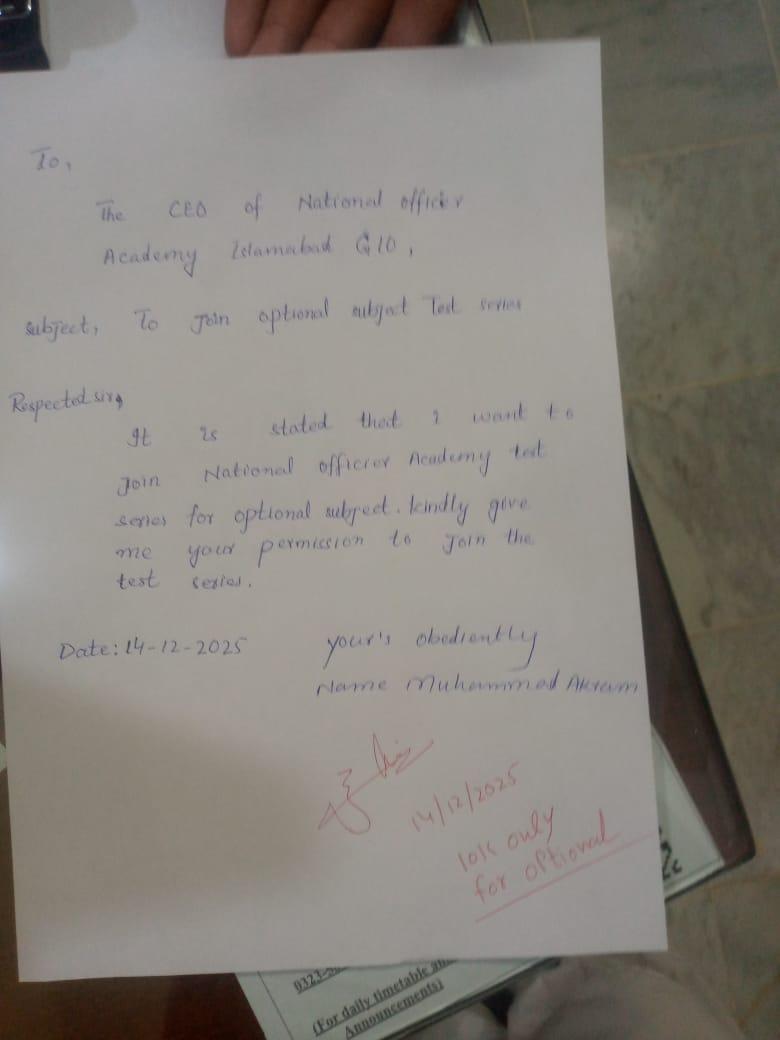 To,
The CEO of National officer
Academy Islamabad G10,
subject, To Join optional subject Test series
Respected sir,
It is stated that I want to
Join National officer Academy test
series for optional subject. kindly give
me your permission to Join the
test series.
Date: 14-12-2025 your's obediently
Name Muhammad Akram
14/12/2025
10K only
for optional
0323-
(For daily timetable an
Announcements)